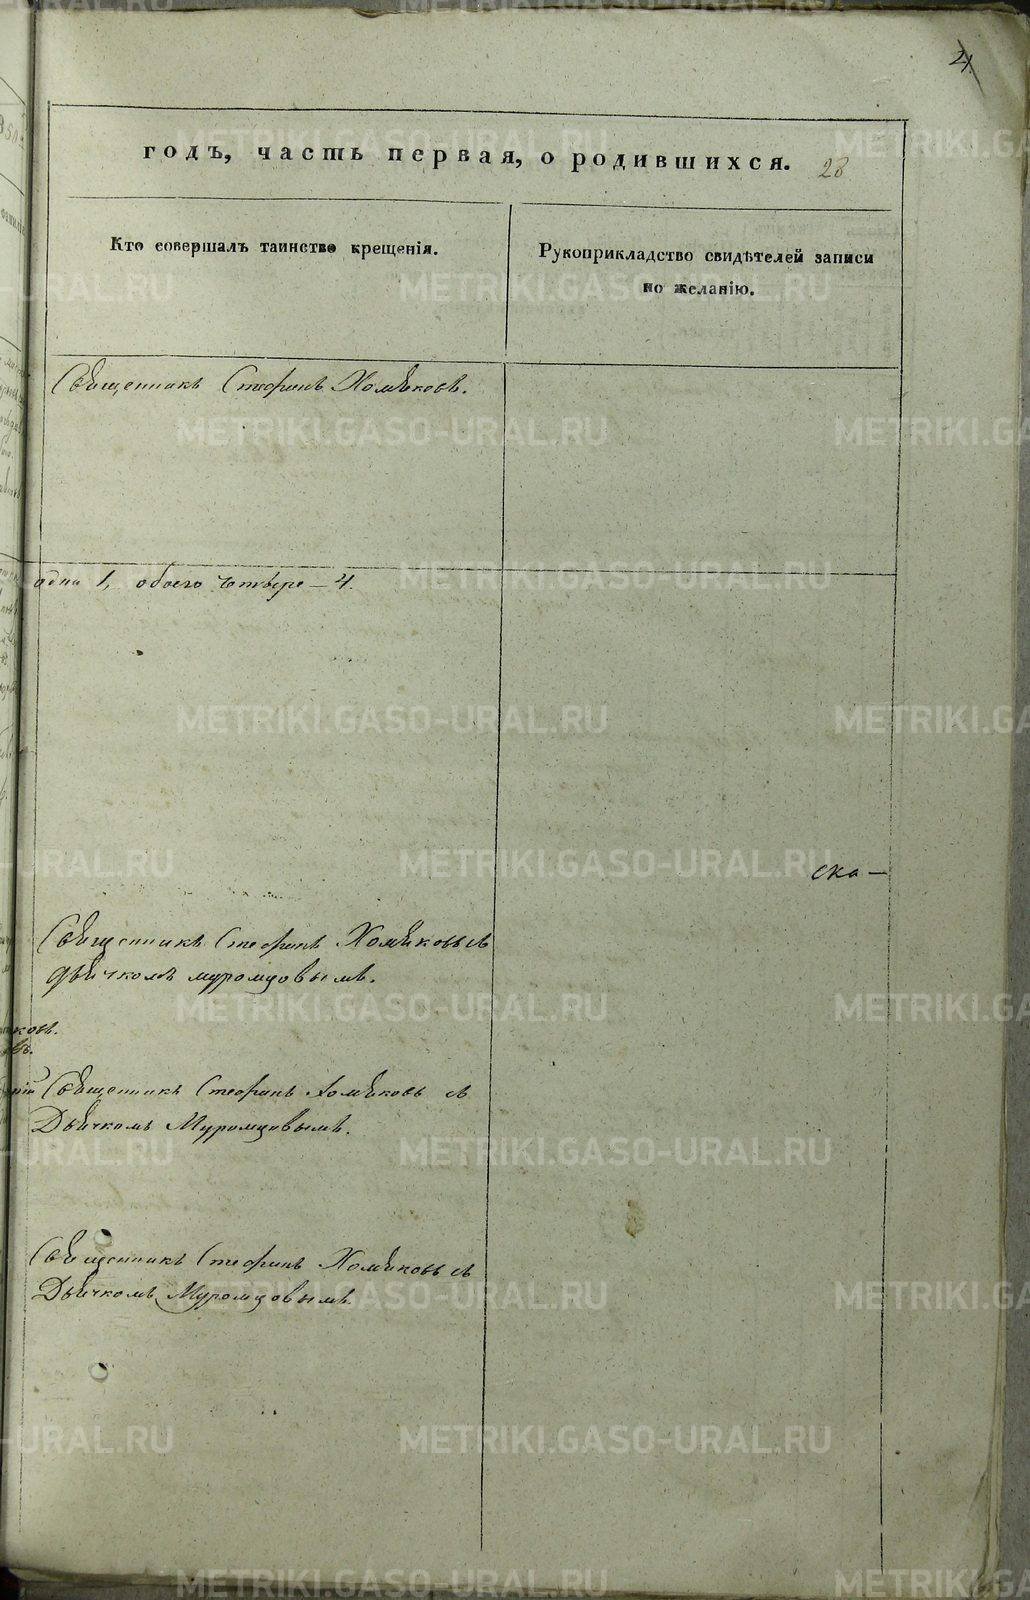 21.
годъ, часть первая, о родившихся.
28
Кто совершалъ таинство крещенія.
Рукоприкладство свидѣтелей записи
по желанію.
Священникъ Стефанъ Хомяковъ.
одна 1, обоего четверо – 4.
ска –
Священникъ Стефанъ Хомяковъ съ
дьячкомъ Муромцовымъ.
ковъ.
въ.
Священникъ Стефанъ Хомяковъ съ
Дьячкомъ Муромцовымъ.
Священникъ Стефанъ Хомяковъ съ
Дьячкомъ Муромцовымъ.
METRIKI.GASO-URAL.RU